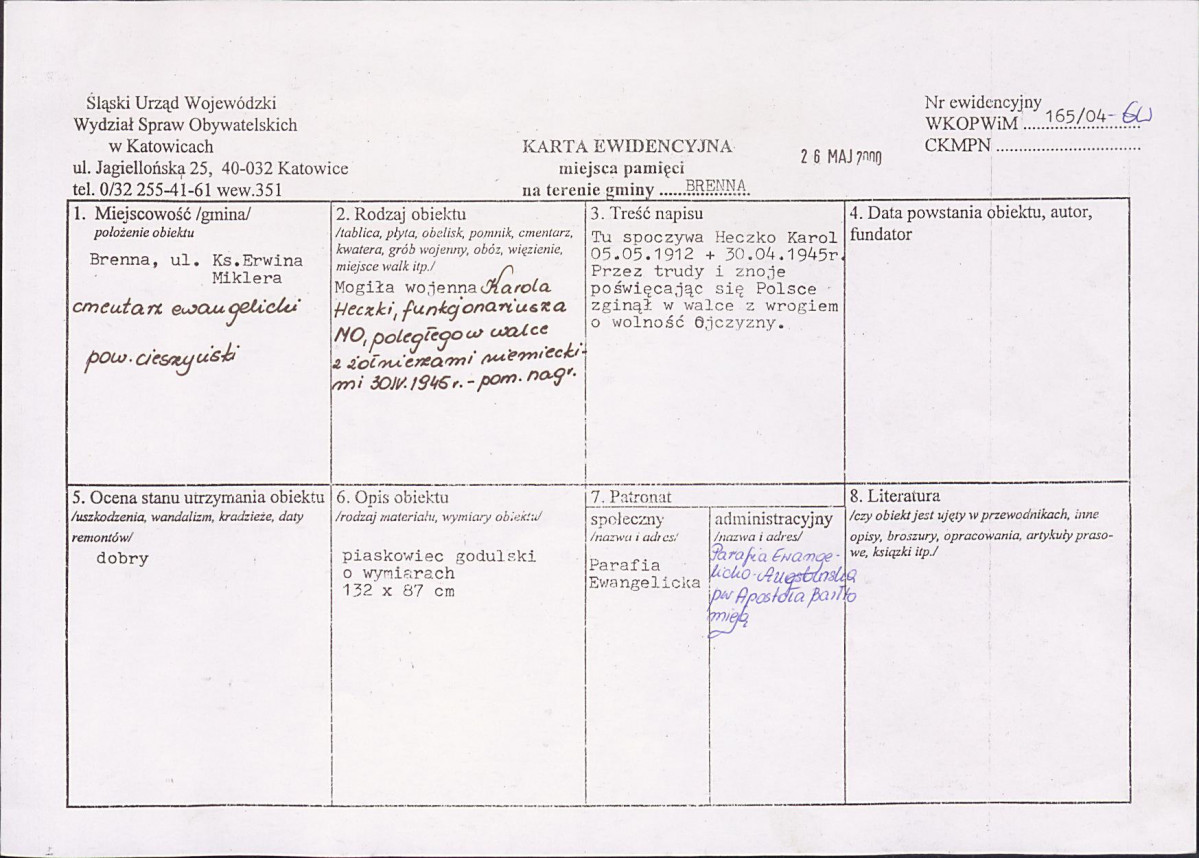 Śląski Urząd Wojewódzki
Wydział Spraw Obywatelskich
w Katowicach
ul. Jagiellońska 25, 40-032 Katowice
tel. 0/32 255-41-61 wew.351
KARTA EWIDENCYJNA
miejsca pamięci
na terenie gminy ......BRENNA
26 MAJ 2000
Nr ewidencyjny
WKOPWiM 165/04-GW
CKMPN ................................
1. Miejscowość /gmina/
położenie obiektu
Brenna, ul. Ks.Erwina
Miklera
cmentarz ewangelicki
pow. cieszyński
2. Rodzaj obiektu
/tablica, płyta, obelisk, pomnik, cmentarz,
kwatera, grób wojenny, obóz, więzienie,
miejsce walk itp./
Mogiła wojenna Karola
Heczki, funkcjonariusza
MO, poległego w walce
z żołnierzami niemiecki-
mi 30.IV.1945 r. - pom. nagr.
3. Treść napisu
Tu spoczywa Heczko Karol
05.05.1912 + 30.04.1945r.
Przez trudy i znoje
poświęcając się Polsce
zginął w walce z wrogiem
o wolność Ojczyzny.
4. Data powstania obiektu, autor,
fundator
5. Ocena stanu utrzymania obiektu
/uszkodzenia, wandalizm, kradzieże, daty
remontów/
dobry
6. Opis obiektu
/rodzaj materiału, wymiary obiektu/
piaskowiec godulski
o wymiarach
132 x 87 cm
7. Patronat
społeczny
/nazwa i adres/
Parafia
Ewangelicka
administracyjny
/nazwa i adres/
Parafia Ewange-
licko-Augsburska
pw Apostoła Bartło
mieja
8. Literatura
/czy obiekt jest ujęty w przewodnikach, inne
opisy, broszury, opracowania, artykuły praso-
we, książki itp./